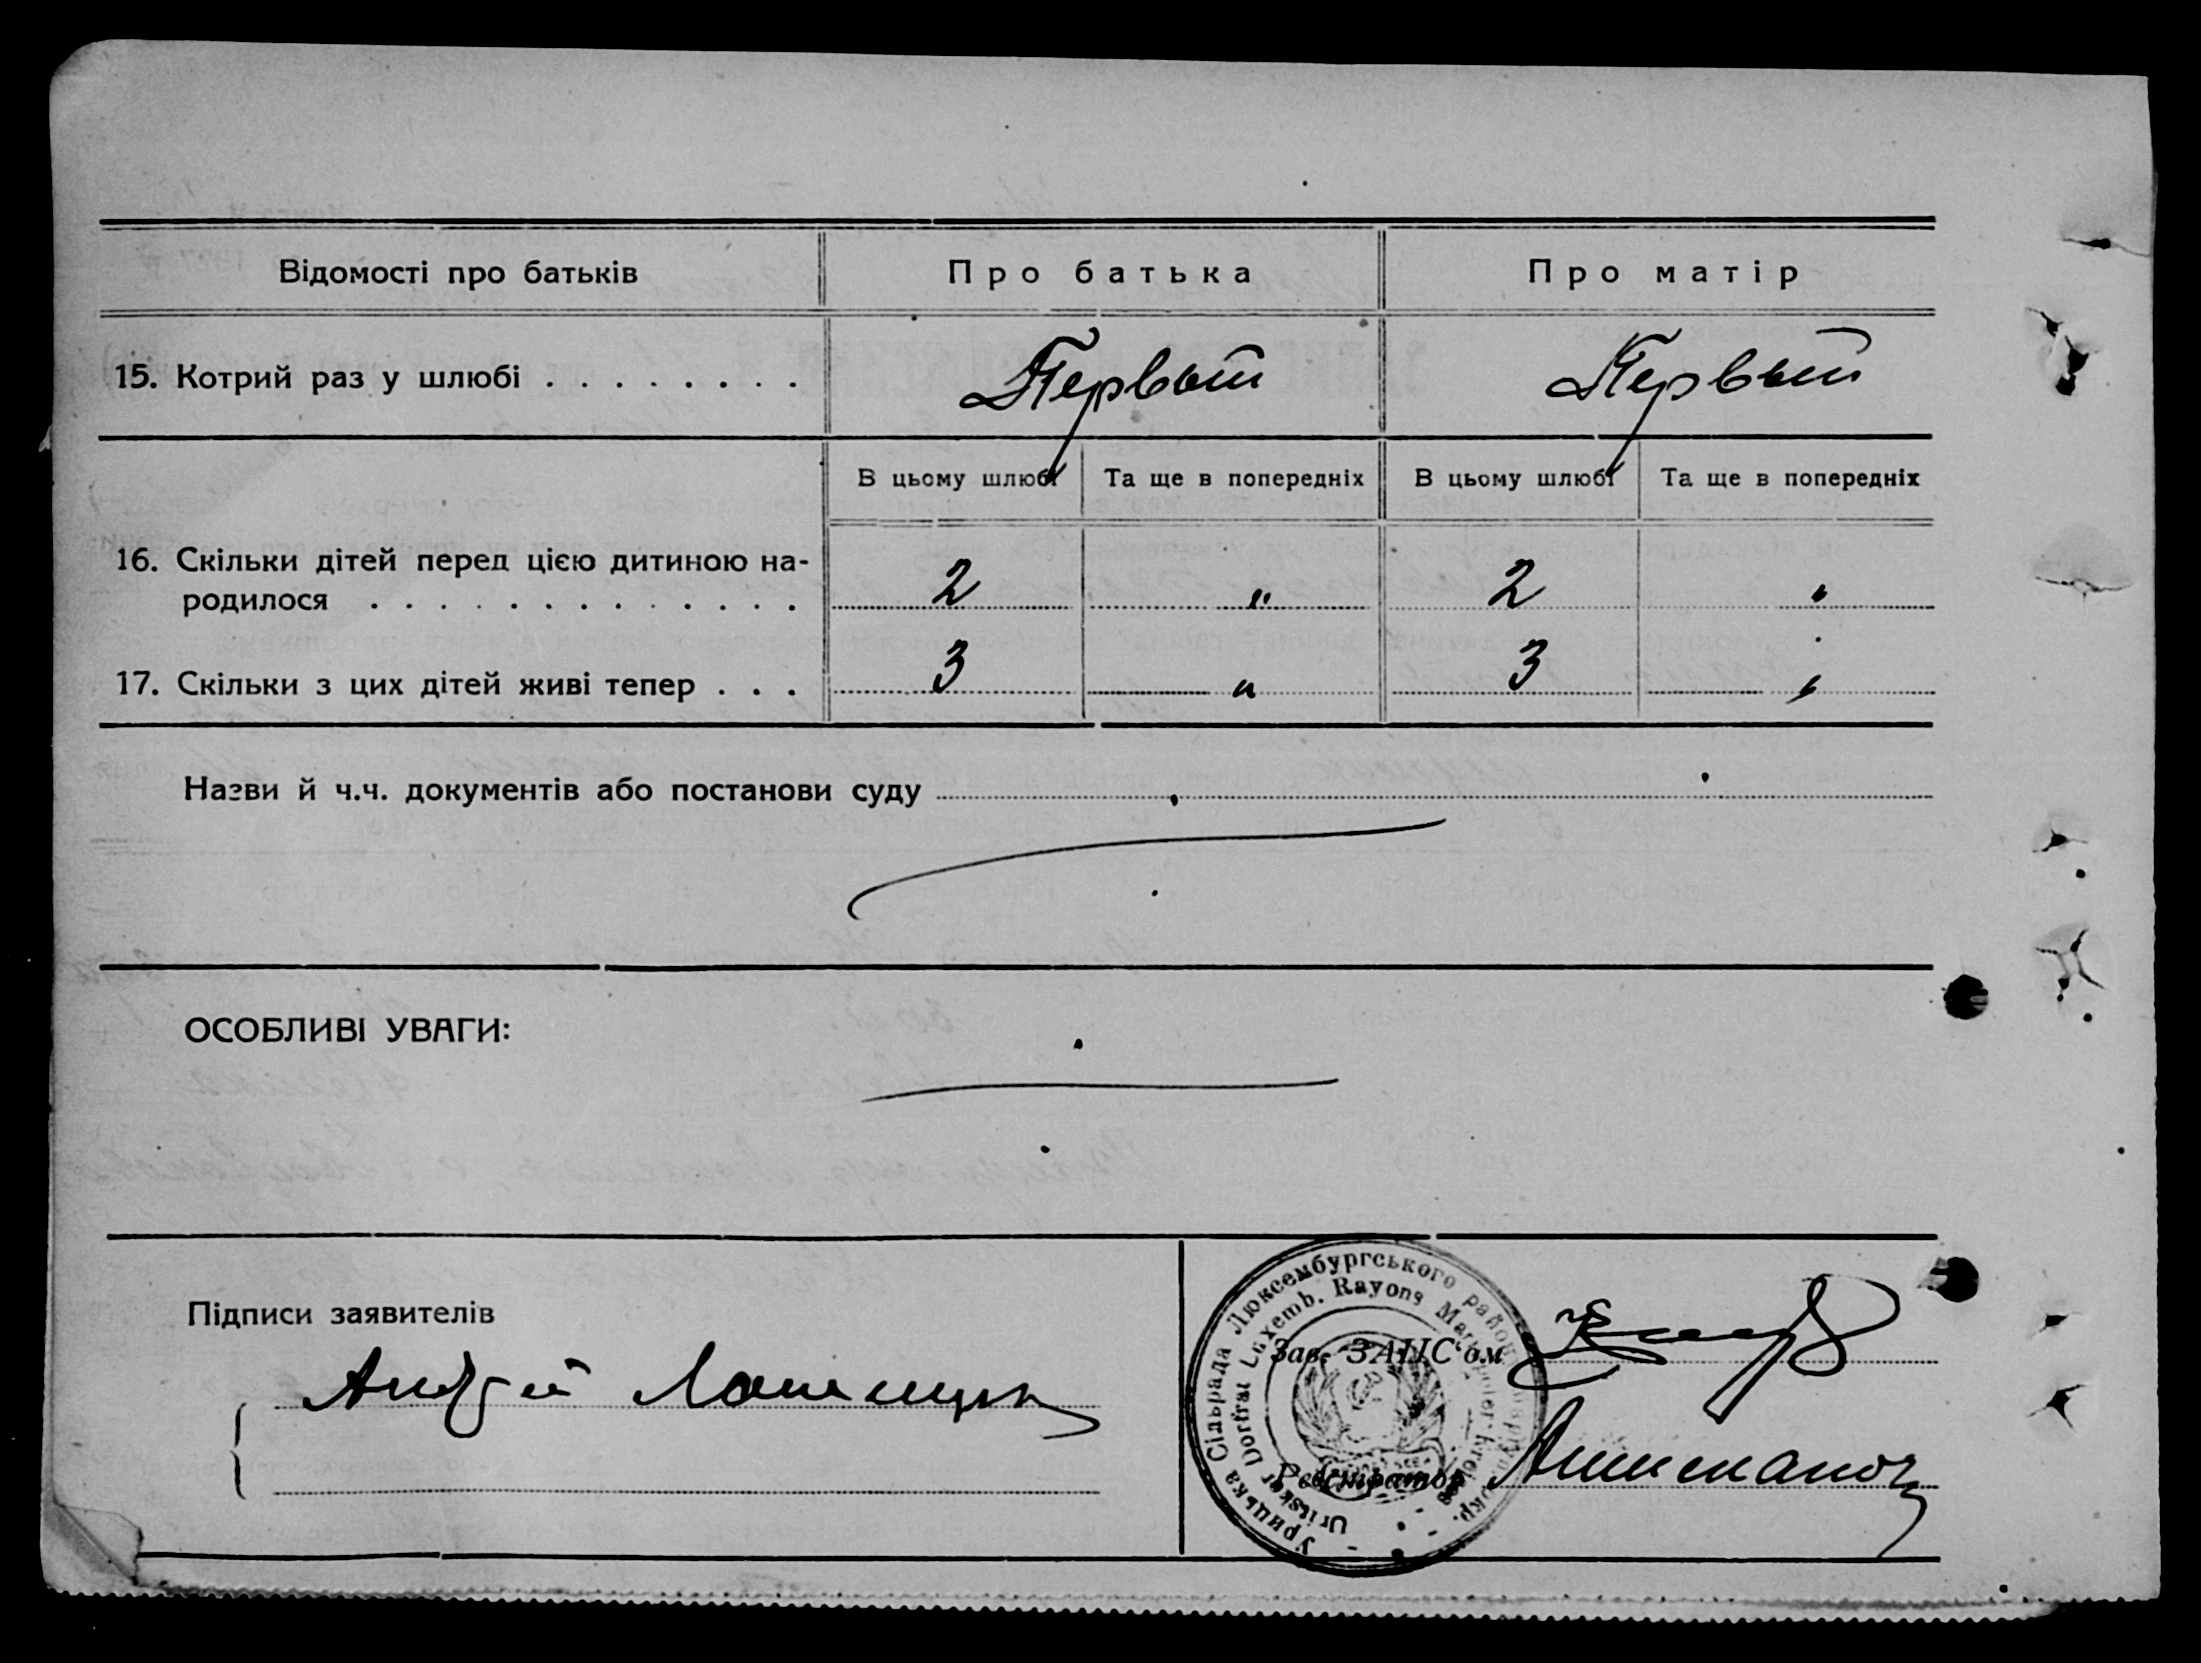 Відомості про батьків
Про батька
Про матір
15. Котрий раз у шлюбі . . . . . . . .
Первый
Первый
В цьому шлюбі
Та ще в попередніх
В цьому шлюбі
Та ще в попередніх
16. Скільки дітей перед цією дитиною на-
родилося . . . . . . . . . . . . .
2
"
2
"
17. Скільки з цих дітей живі тепер . . .
3
"
3
"
Назви й ч.ч. документів або постанови суду
ОСОБЛИВІ УВАГИ:
Підписи заявителів
Андрей
Зав. ЗАГС'ом
Реєстратор
Урицька Сільрада Люксембургського району Маріупільської окр.
Uritsker Dorfrat Luxemb. Rayons Mariupoler Kreises